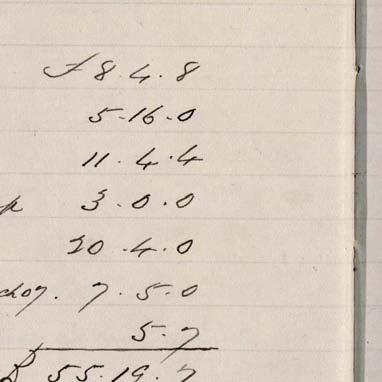 £ 8.4.8
5.16.0
11.4.4
3.0.0
20.4.0
7.5.0
5.7
55.19.7